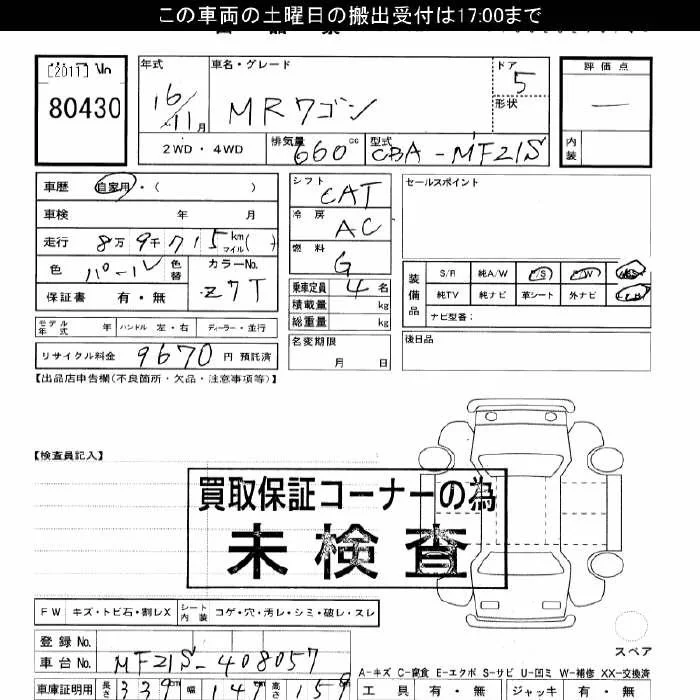 この車両の土曜日の搬出受付は17:00まで
[2011] No 年式 車名・グレード ドア 評価点
80430 16/11月 MRワゴン 5 —
形状
2WD・4WD 排気量 660cc 型式 CBA-MF21S 内装
車歴 自家用・( ) シフト CAT セールスポイント
車検 年 月 冷房 AC
走行 8万9千715km マイル( ) 燃料 G
色 パール 色替 カラーNo. Z7T 乗車定員 4名 装備品 S/R 純A/W P/S P/W
保証書 有・無 積載量 kg 純TV 純ナビ 革シート 外ナビ
総重量 kg ナビ型番:
モデル年式 年 ハンドル 左・右 ディーラー・並行 名変期限 後日品
リサイクル料金 9670円 預託済 月 日
【出品店申告欄(不良箇所・欠品・注意事項等)】
【検査員記入】
買取保証コーナーの為
未検査
FW キズ・トビ石・割レX シート内装 コゲ・穴・汚レ・シミ・破レ・スレ
登録No. スペア
車台No. MF21S-408057
A-キズ C-腐食 E-エクボ S-サビ U-凹ミ W-補修 XX-交換済
車庫証明用 長さ 339cm 幅 147 高さ 159 工具 有・無 ジャッキ 有・無